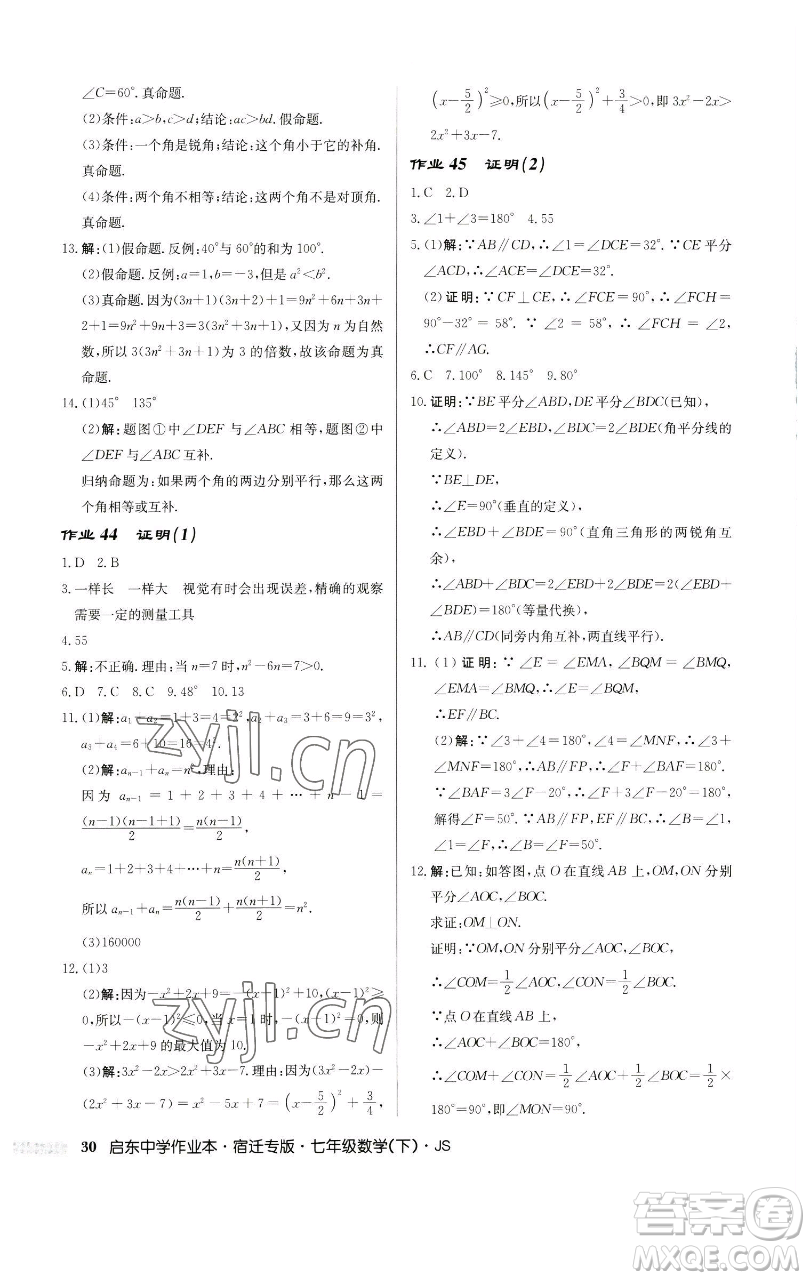 ∠C=60°. 真命题.
(2)条件:a>b,c>d;结论:ac>bd.假命题.
(3)条件:一个角是锐角;结论:这个角小于它的补角.
真命题.
(4)条件:两个角不相等;结论:这两个角不是对顶角.
真命题.
13.解:(1)假命题.反例:40°与60°的和为100°.
(2)假命题.反例:a=1,b=-3,但是a²<b².
(3)真命题.因为(3n+1)(3n+2)+1=9n²+3n+6n+
2+1=9n²+9n+3=3(3n²+3n+1),又因为n为自然
数,所以3(3n²+3n+1)为3的倍数,故该命题为真
命题.
14.(1)45° 135°
(2)解:题图①中∠DEF与∠ABC相等,题图②中
∠DEF与∠ABC互补.
归纳命题为:如果两个角的两边分别平行,那么这两
个角相等或互补.
作业44 证明(1)
1.D 2.B
3.一样长 一样大 视觉有时会出现误差,精确的观察
需要一定的测量工具
4.55
5.解:不正确.理由:当n=7时,n²-6n=7>0.
6.D 7.C 8.C 9.48° 10.13
11.(1)解:a₁+a₂=1+3=4=2²,a₂+a₃=3+6=9=3²,
a₃+a₄=6+10=16=4².
(2)解:aₙ₋₁+aₙ=n².理由:
因为 aₙ₋₁ = 1 + 2 + 3 + 4 + … + n - 1 =
(n-1)(n-1+1)/2 = n(n-1)/2,
aₙ=1+2+3+4+…+n=n(n+1)/2,
所以aₙ₋₁+aₙ=n(n-1)/2+n(n+1)/2=n².
(3)160000
12.(1)3
(2)解:因为-x²+2x+9=-(x-1)²+10,(x-1)²≥
0,所以-(x-1)²≤0.当x=1时,-(x-1)²=0,则
-x²+2x+9的最大值为10.
(3)解:3x²-2x>2x²+3x-7.理由:因为3x²-2x
-(2x²+3x-7)=x²-5x+7=(x-5/2)²+3/4,
(x-5/2)²≥0,所以(x-5/2)²+3/4>0,即3x²-2x>
2x²+3x-7.
作业45 证明(2)
1.C 2.D
3.∠1+∠3=180° 4.55
5.(1)解:∵AB∥CD,∴∠1=∠DCE=32°.∵CE平分
∠ACD,∴∠ACE=∠DCE=32°.
(2)证明:∵CF⊥CE,∴∠FCE=90°,∴∠FCH=
90°-32°=58°.∵∠2=58°,∴∠FCH=∠2,
∴CF∥AG.
6.C 7.100° 8.145° 9.80°
10.证明:∵BE平分∠ABD,DE平分∠BDC(已知),
∴∠ABD=2∠EBD,∠BDC=2∠BDE(角平分线的
定义).
∵BE⊥DE,
∴∠E=90°(垂直的定义),
∴∠EBD+∠BDE=90°(直角三角形的两锐角互
余),
∴∠ABD+∠BDC=2∠EBD+2∠BDE=2(∠EBD
+∠BDE)=180°(等量代换),
∴AB∥CD(同旁内角互补,两直线平行).
11.(1)证明:∵∠E=∠EMA,∠BQM=∠BMQ,
∠EMA=∠BMQ,∴∠E=∠BQM,
∴EF∥BC.
(2)解:∵∠3+∠4=180°,∠4=∠MNF,∴∠3+
∠MNF=180°,∴AB∥FP,∴∠F+∠BAF=180°.
∵∠BAF=3∠F-20°,∴∠F+3∠F-20°=180°,
解得∠F=50°.∵AB∥FP,EF∥BC,∴∠B=∠1,
∠1=∠F,∴∠B=∠F=50°.
12.解:已知:如答图,点O在直线AB上,OM,ON分别
平分∠AOC,∠BOC.
求证:OM⊥ON.
证明:∵OM,ON分别平分∠AOC,∠BOC,
∴∠COM=1/2∠AOC,∠CON=1/2∠BOC.
∵点O在直线AB上,
∴∠AOC+∠BOC=180°,
∴∠COM+∠CON=1/2∠AOC+1/2∠BOC=1/2×
30 启东中学作业本·宿迁专版·七年级数学(下)·JS
zyjl.cn
zyjl.cn
答案圈
MXQE.COM